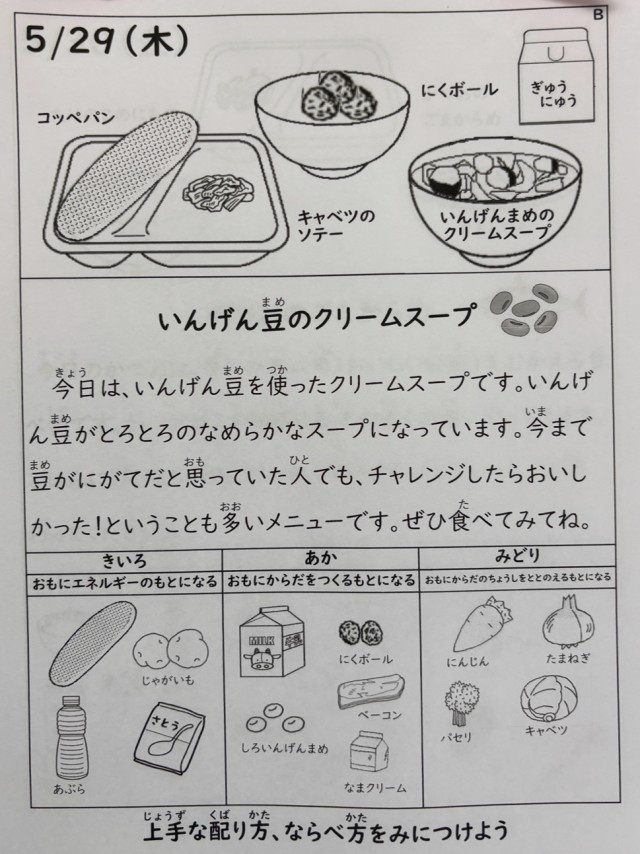 B
5/29(木)
コッペパン
にくボール
ぎゅう
にゅう
キャベツの
ソテー
いんげんまめの
クリームスープ
いんげん豆のクリームスープ
まめ
今日は、いんげん豆を使ったクリームスープです。いんげ
きょう まめ つか
ん豆がとろとろのなめらかなスープになっています。今まで
まめ いま
豆がにがてだと思っていた人でも、チャレンジしたらおいし
まめ おも ひと
かった!ということも多いメニューです。ぜひ食べてみてね。
おお た
きいろ
おもにエネルギーのもとになる
じゃがいも
さとう
あぶら
あか
おもにからだをつくるもとになる
MILK
牛乳
にくボール
ベーコン
しろいんげんまめ
なまクリーム
みどり
おもにからだのちょうしをととのえるもとになる
にんじん
たまねぎ
パセリ
キャベツ
上手な配り方、ならべ方をみにつけよう
じょうず くば かた かた